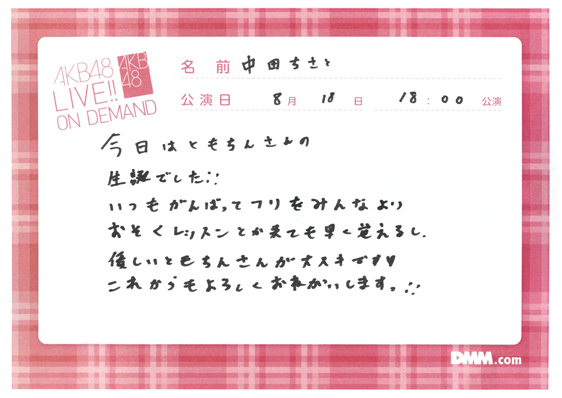 AKB48
LIVE!!
ON DEMAND
AKB
48
名前 中田ちさと
公演日 8月 18日 18:00 公演
今日はともちんさんの
生誕でした!!
いつもがんばってフリをみんなより
おそくレッスンとか来ても早く覚えるし、
優しいともちんさんが大スキです♥♥
これからもよろしくおねがいします。!!
DMM.com